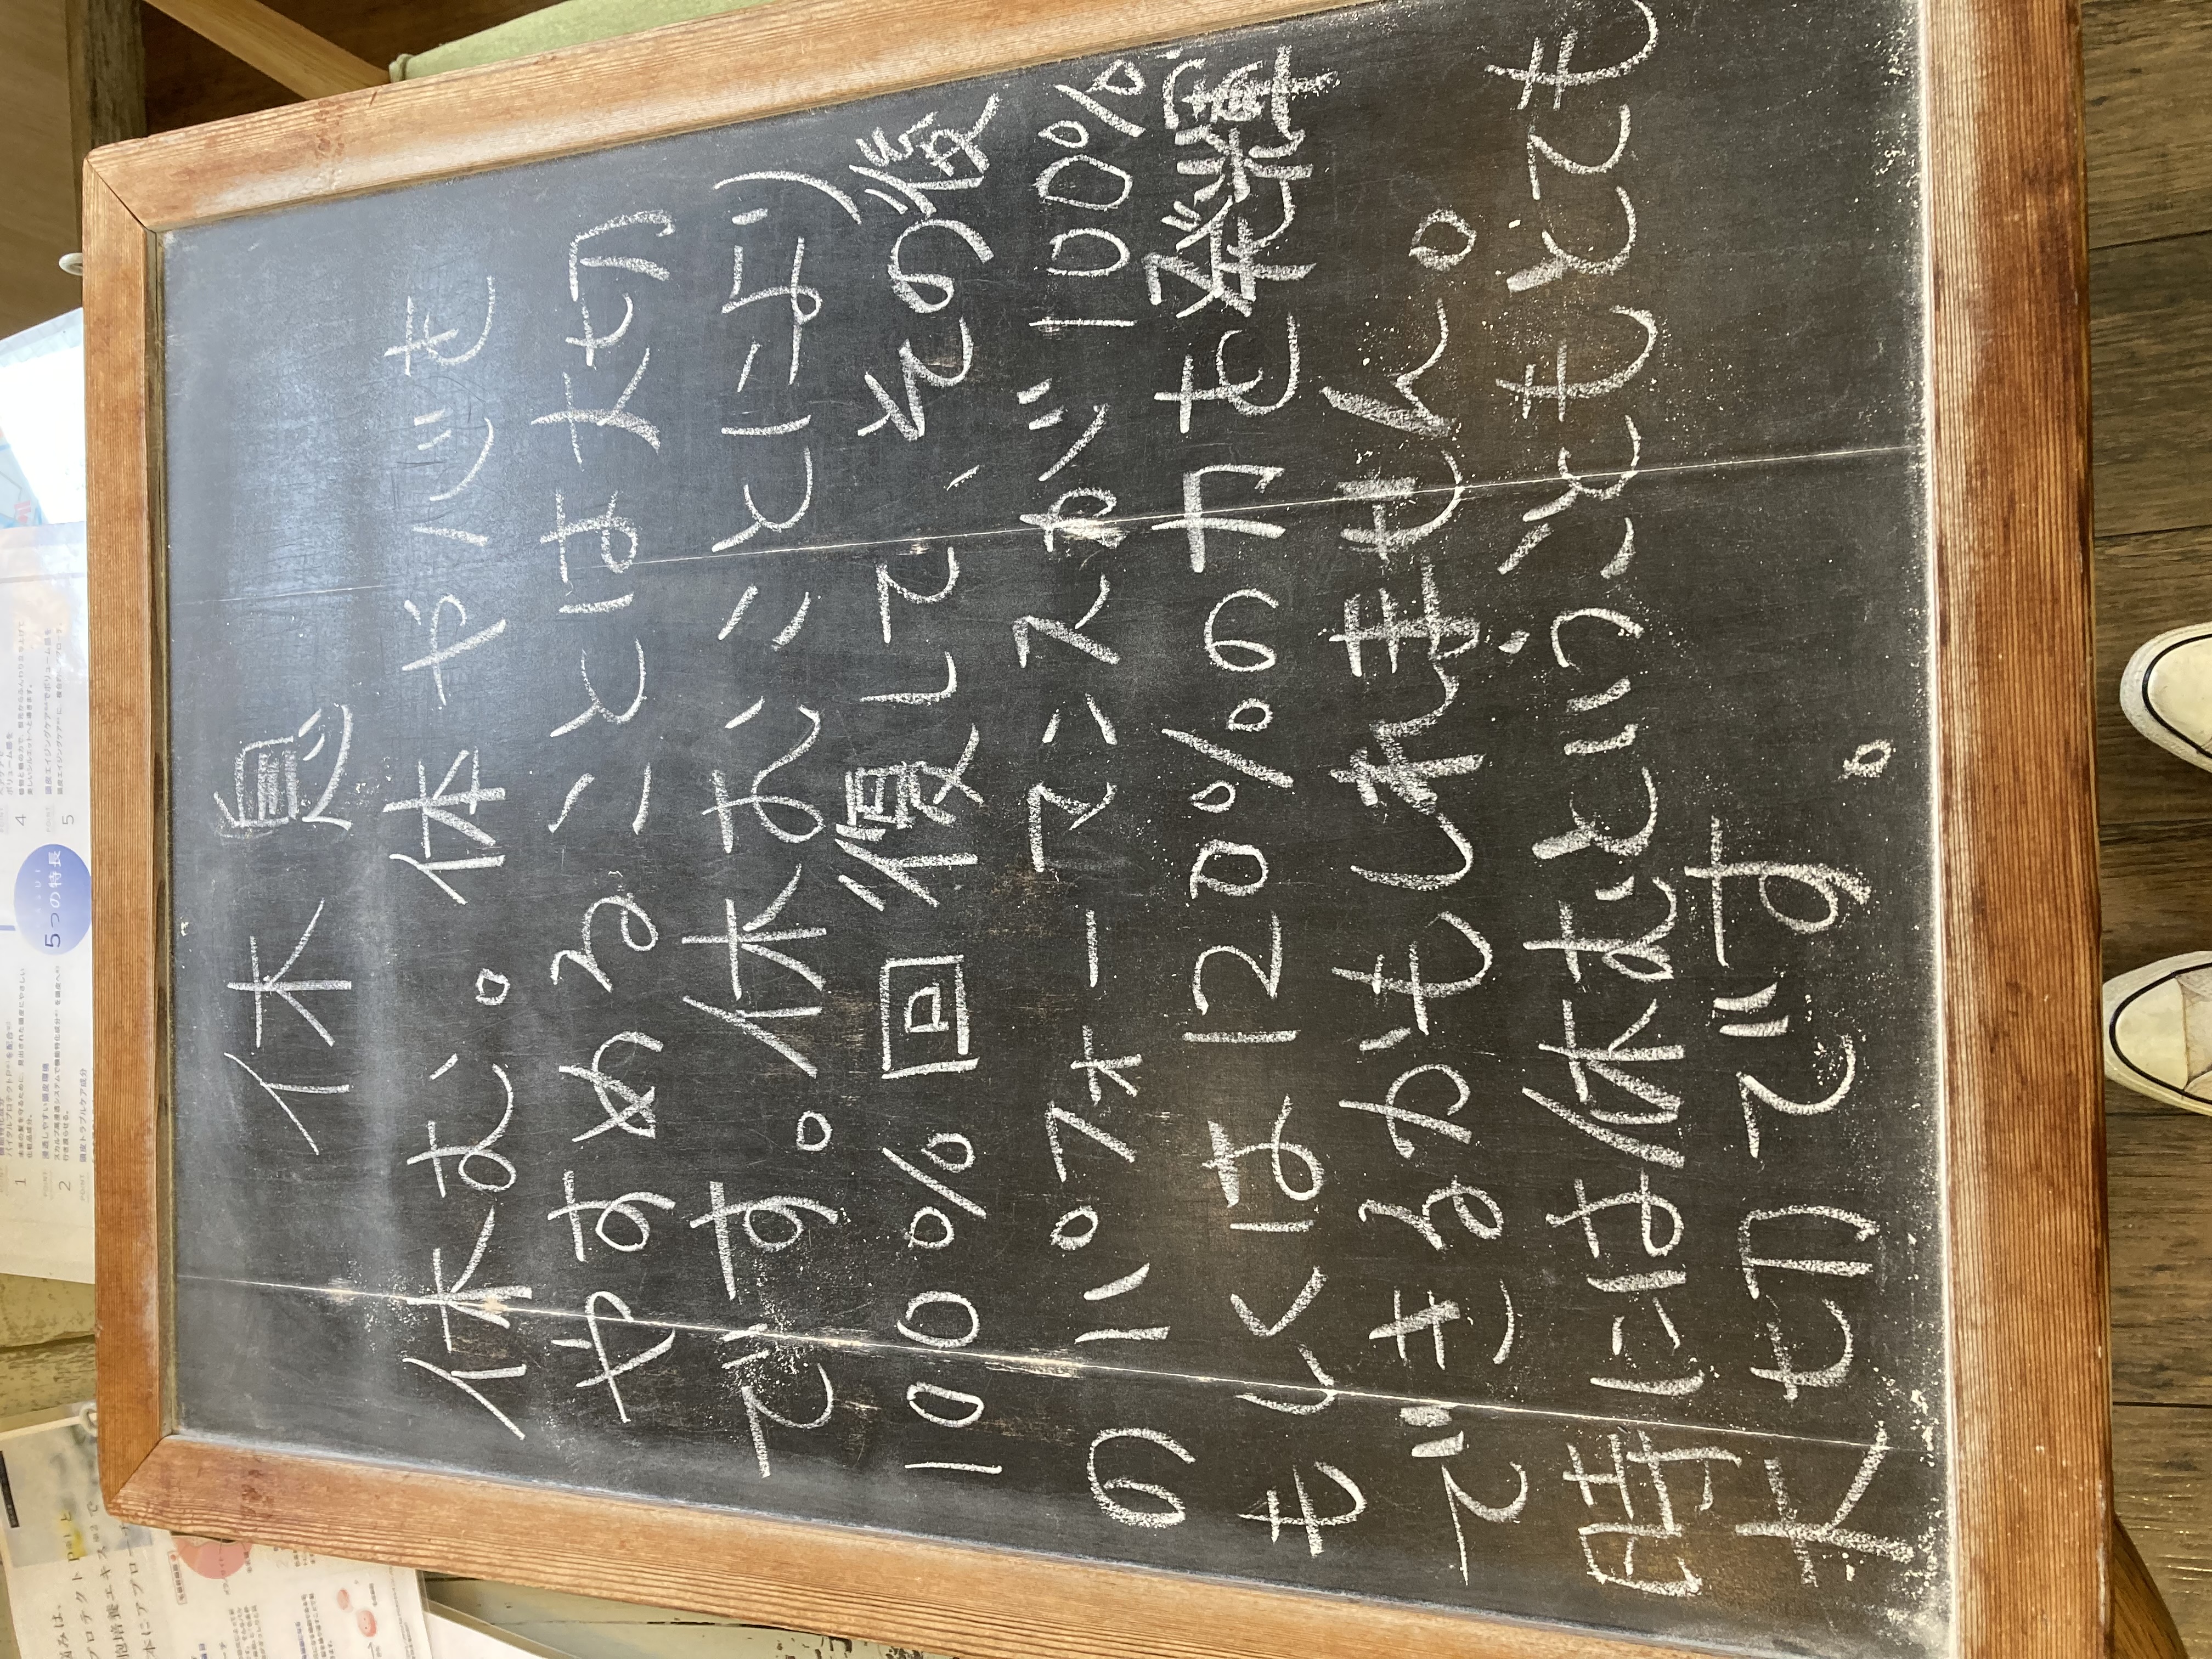 休息
休む。体や心を
やすめることは大切
です。休むことにより
100%回復して、その後
のパフォーマンスが100%
もしくは120%の力を発揮
できるかもしれません。
時には休むということもとても
大切です。
5つの特長